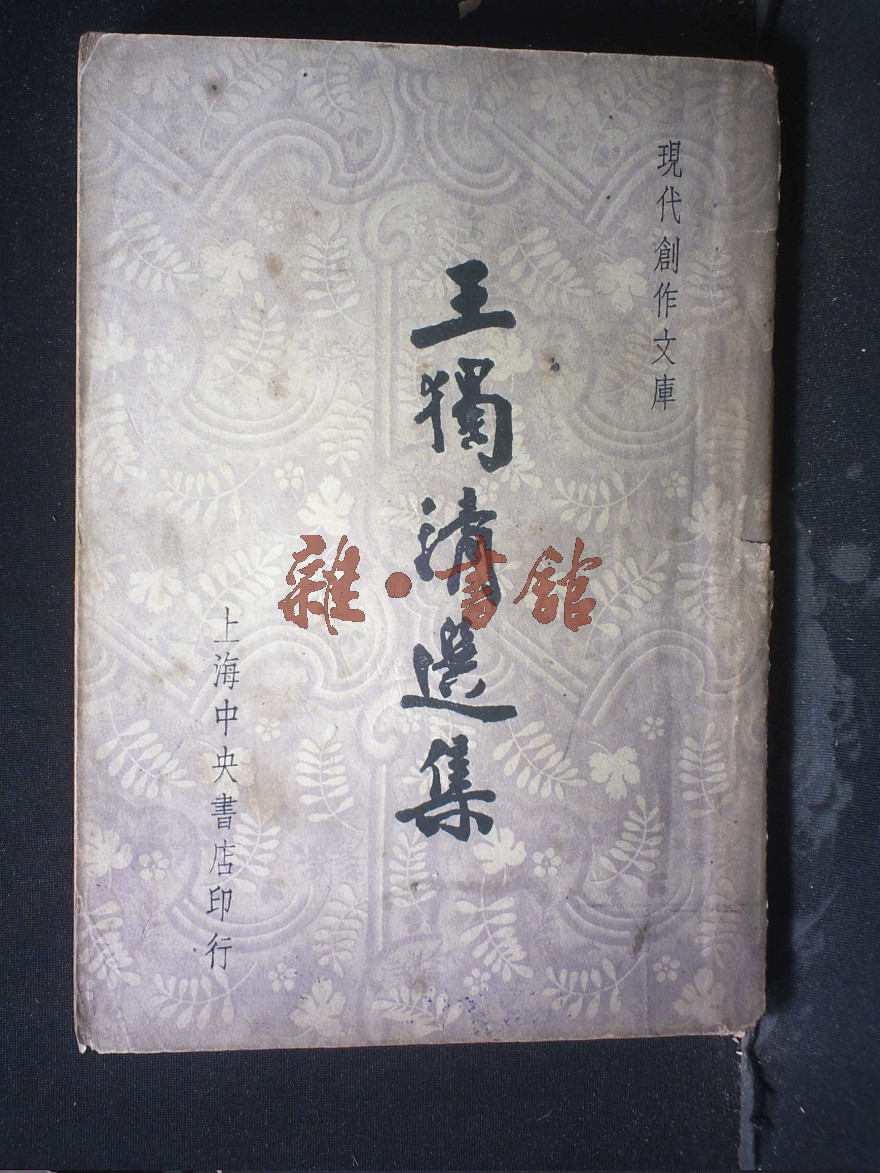 現代創作文庫
王獨清選集
上海中央書店印行
雜·書館